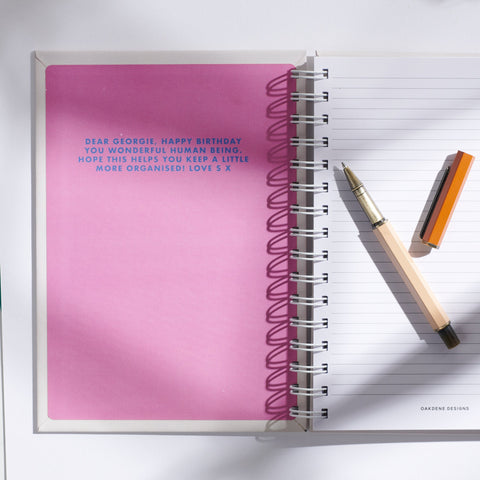 DEAR GEORGIE, HAPPY BIRTHDAY
YOU WONDERFUL HUMAN BEING.
HOPE THIS HELPS YOU KEEP A LITTLE
MORE ORGANISED! LOVE S X
OAKDENE DESIGNS